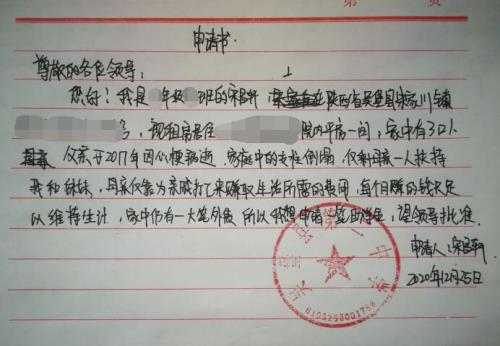 第 页
申请书.
尊敬的各位领导:
您好!我是 年级 班的宋昌轩,家庭住在陕西省吴堡县宋家川镇
号,现租房居住 院内平房一间,家中有3口人
父亲于2017年因心梗病逝.家庭中的支柱倒塌,仅剩母亲一人扶持
我和妹妹,母亲仅靠为亲戚打工来赚取生活所需的费用,每个月赚的钱不足
以维持生计,家中仍有一大笔外债 所以我想申请 助学金,望领导批准.
申请人:宋昌轩
2020年12月25日
吴堡县第一中学